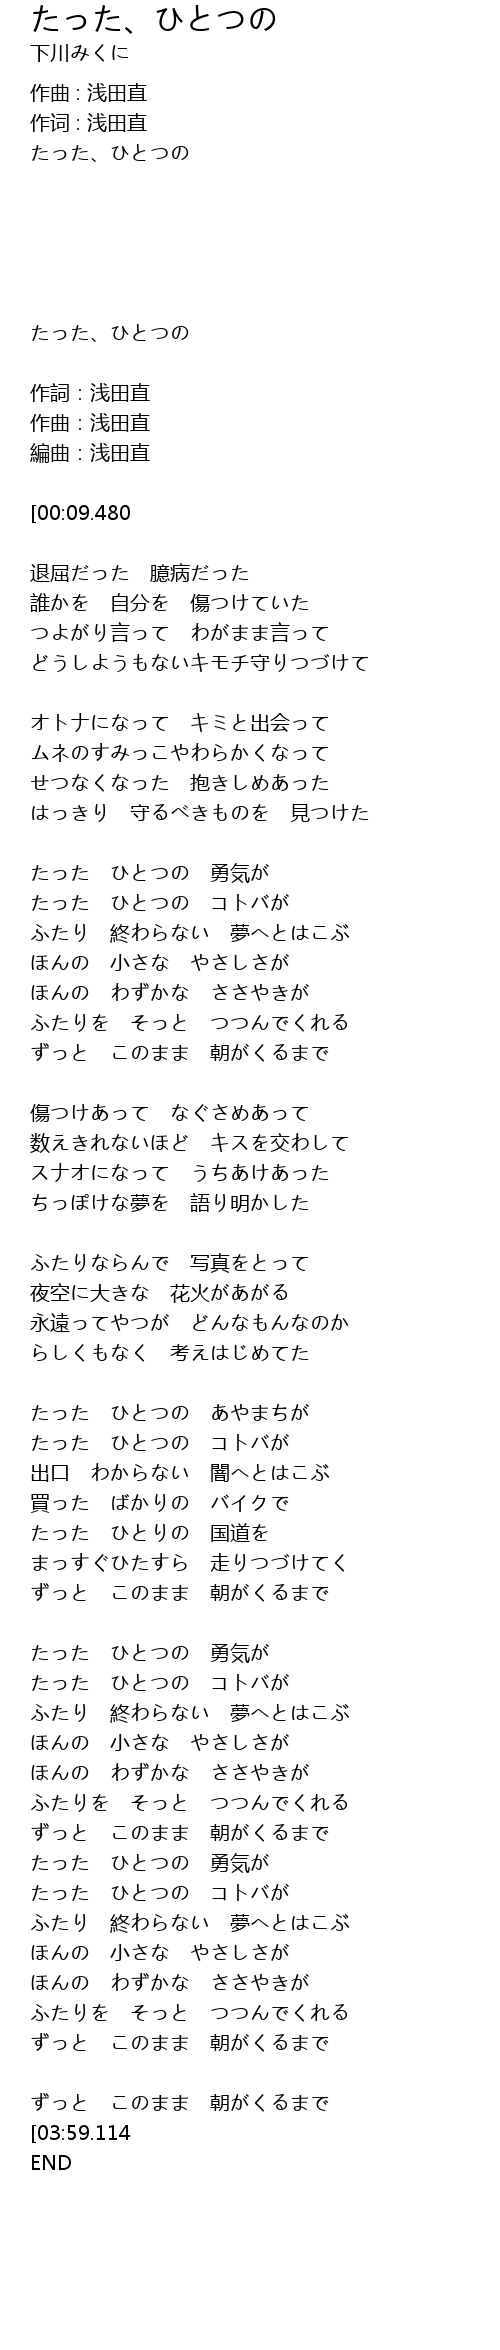 たった、ひとつの
下川みくに
作曲 : 浅田直
作词 : 浅田直
たった、ひとつの
たった、ひとつの
作詞：浅田直
作曲：浅田直
編曲：浅田直
[00:09.480
退屈だった　臆病だった
誰かを　自分を　傷つけていた
つよがり言って　わがまま言って
どうしようもないキモチ守りつづけて
オトナになって　キミと出会って
ムネのすみっこやわらかくなって
せつなくなった　抱きしめあった
はっきり　守るべきものを　見つけた
たった　ひとつの　勇気が
たった　ひとつの　コトバが
ふたり　終わらない　夢へとはこぶ
ほんの　小さな　やさしさが
ほんの　わずかな　ささやきが
ふたりを　そっと　つつんでくれる
ずっと　このまま　朝がくるまで
傷つけあって　なぐさめあって
数えきれないほど　キスを交わして
スナオになって　うちあけあった
ちっぽけな夢を　語り明かした
ふたりならんで　写真をとって
夜空に大きな　花火があがる
永遠ってやつが　どんなもんなのか
らしくもなく　考えはじめてた
たった　ひとつの　あやまちが
たった　ひとつの　コトバが
出口　わからない　闇へとはこぶ
買った　ばかりの　バイクで
たった　ひとりの　国道を
まっすぐひたすら　走りつづけてく
ずっと　このまま　朝がくるまで
たった　ひとつの　勇気が
たった　ひとつの　コトバが
ふたり　終わらない　夢へとはこぶ
ほんの　小さな　やさしさが
ほんの　わずかな　ささやきが
ふたりを　そっと　つつんでくれる
ずっと　このまま　朝がくるまで
たった　ひとつの　勇気が
たった　ひとつの　コトバが
ふたり　終わらない　夢へとはこぶ
ほんの　小さな　やさしさが
ほんの　わずかな　ささやきが
ふたりを　そっと　つつんでくれる
ずっと　このまま　朝がくるまで
ずっと　このまま　朝がくるまで
[03:59.114
END